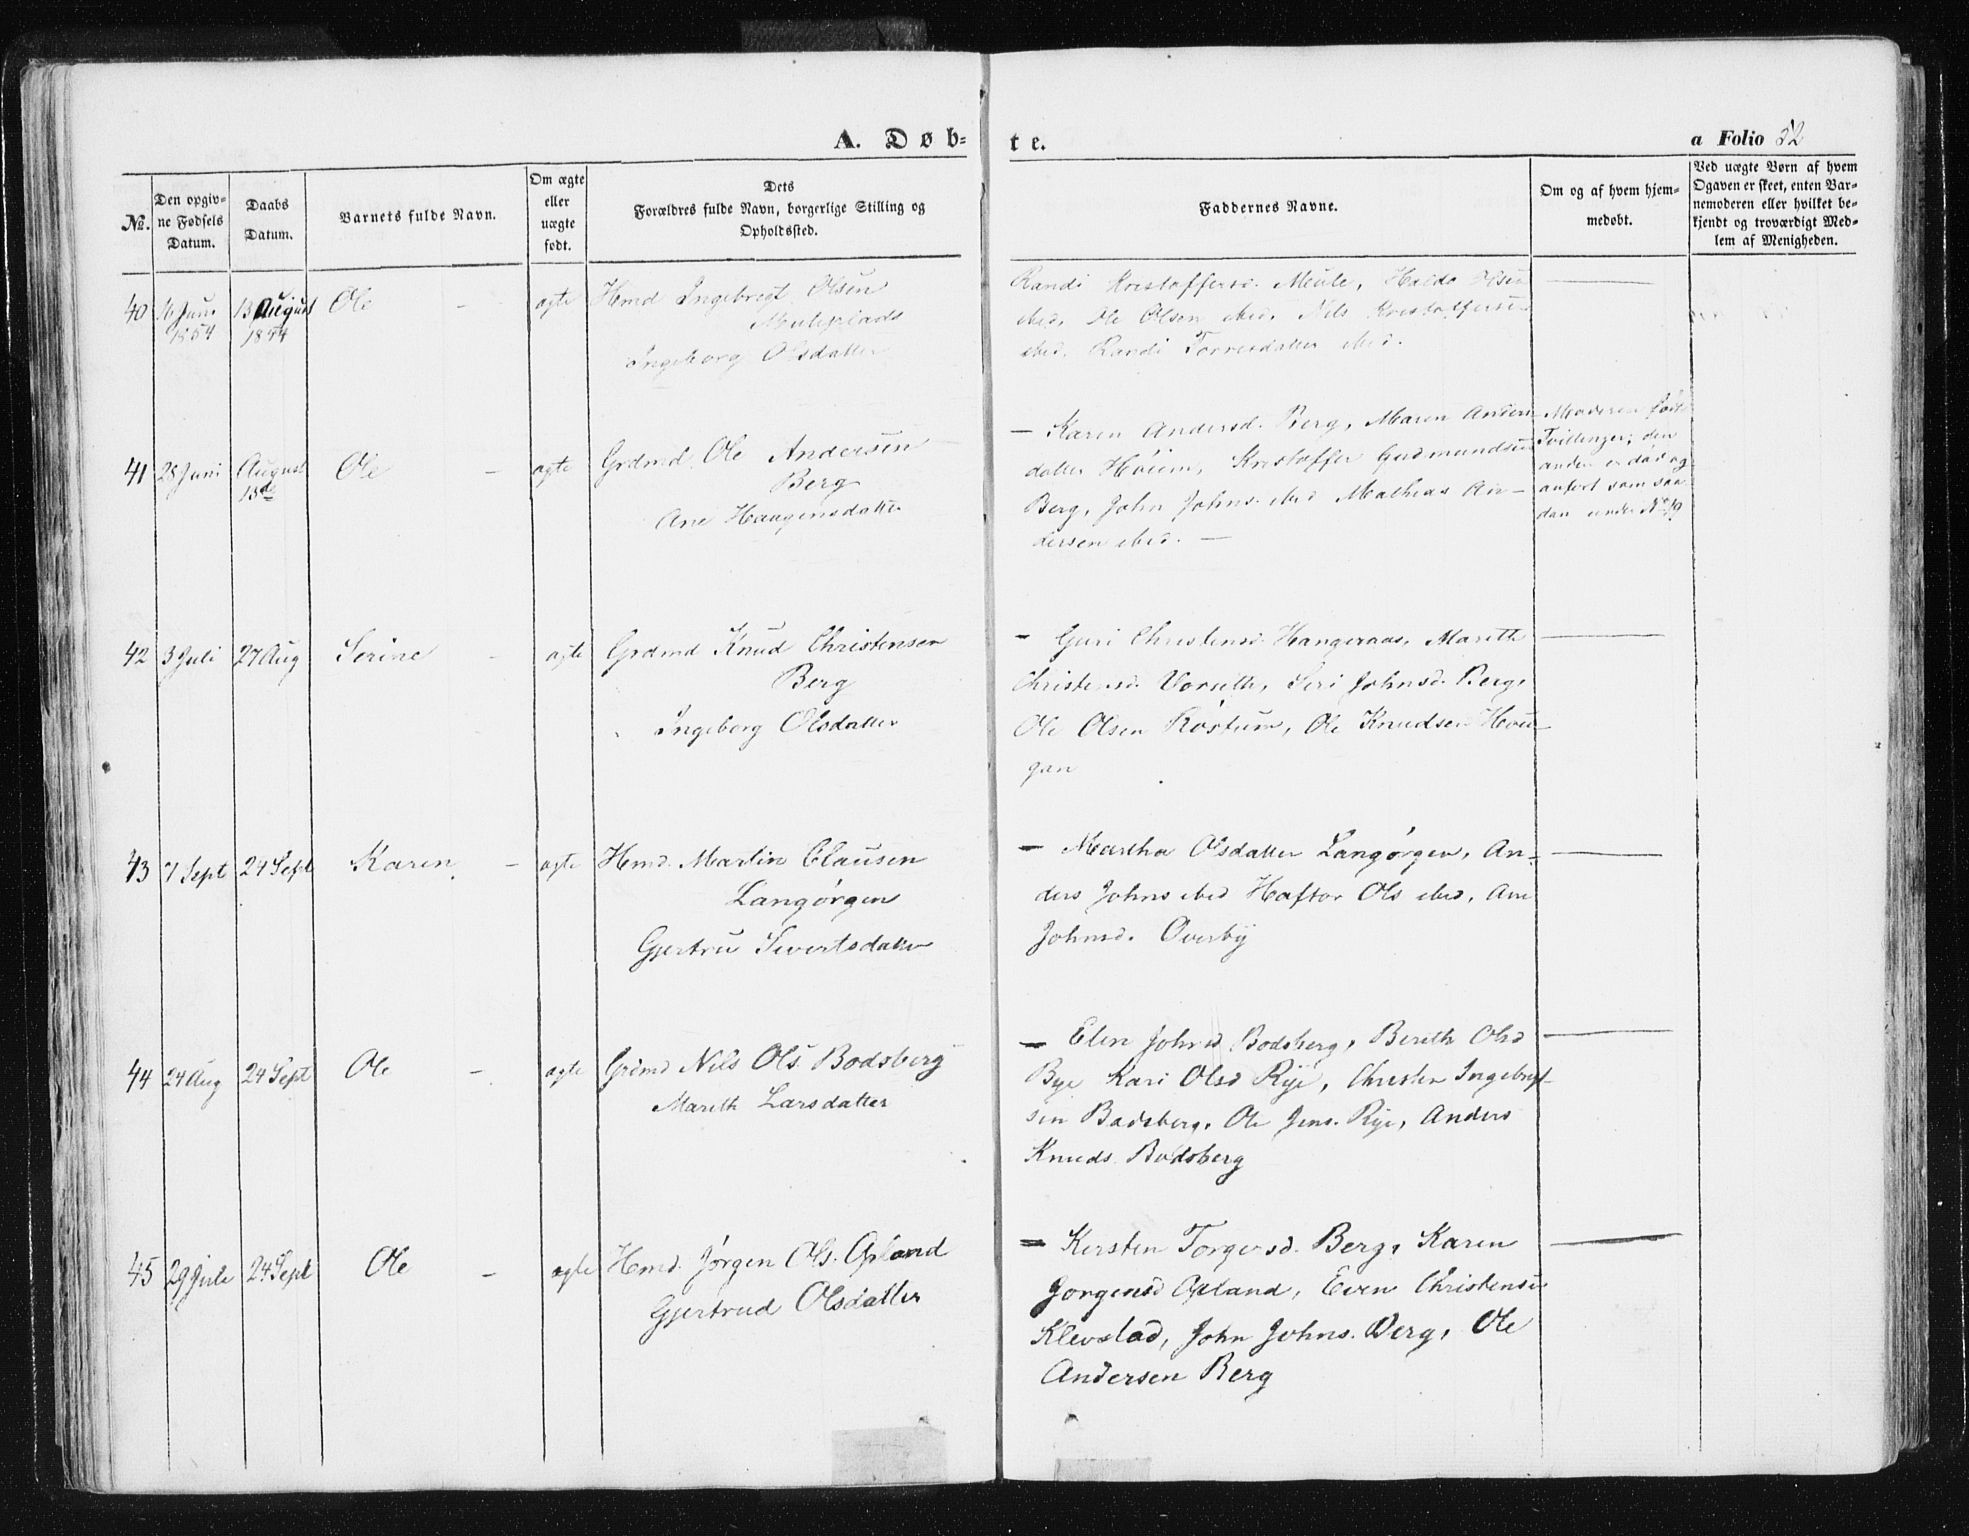 A. Døb-
te.
a Folio 32
No.
Den opgiv-
ne Fødsels
Datum.
Daabs
Datum.
Barnets fulde Navn.
Om ægte
eller
uægte
født.
Dets
Forældres fulde Navn, borgerlige Stilling og
Opholdssted.
Faddernes Navne.
Om og af hvem hjem-
medøbt.
Ved uægte Børn af hvem
Ogaven er skeet, enten Bar-
nemoderen eller hvilket be-
kjendt og troværdigt Med-
lem af Menigheden.
40
16 Juni
1854
13 August
1854
Ole -
ægte
Hmd Ingebregt Olsen
Ingeborg Olsdatter
Randi Kristoffersd. Meule, Olsen
ibid, Ole Olsen ibid, Nils Kristoffersen
ibid. Randi Torresdatter ibid.
41
28 Juni
August
13de
Ole -
ægte
Grdmd. Ole Andersen
Berg
Ane Haagensdatter
- Karen Andersd. Berg, Maren Anders-
datter Höiem, Kristoffer Gudmundsen
Berg, John Johns. ibid Mathias An-
dersen ibid. -
Moderen født
Tvillinger; den
anden er død og
anført som saa-
dan under No 19
42
3 Juli
27 Aug
Serine -
ægte
Grdmd Knud Christensen
Berg
Ingeborg Olsdatter
- Guri Christensd. Hangeraas, Marith
Christensd. Vorseth, Seri Johnsd. Berg,
Ole Olsen Rostum, Ole Knudsen Hou-
gan
43
7 Sept
24 Sept
Karen. -
ægte
Hmd. Martin Clausen
Langørgen
Gjertru Sivertsdatter
- Martha Olsdatter Langørgen, An-
ders Johns ibid Haftor Ols ibid, Ane
Johnsd. Overby
44
24 Aug
24 Sept
Ole -
ægte
Grdmd Nils Ols. Bodsberg
Marith Larsdatter
- Elen Johnsd Bodsberg, Berith Olsd
Bye Kari Olsd Rye, Christen Ingebregt-
sen Badsberg, Ole Jens. Rye, Anders
Knuds. Bodsberg
45
29 Juli
24 Sept
Ole -
ægte
Hmd. Jørgen Ols. Opland
Gjertrud Olsdatter
- Kersten Torgersd. Berg, Karen
Jorgensd Opland, Even Christensen
Klevstad, John Johns. Berg, Ole
Andersen Berg